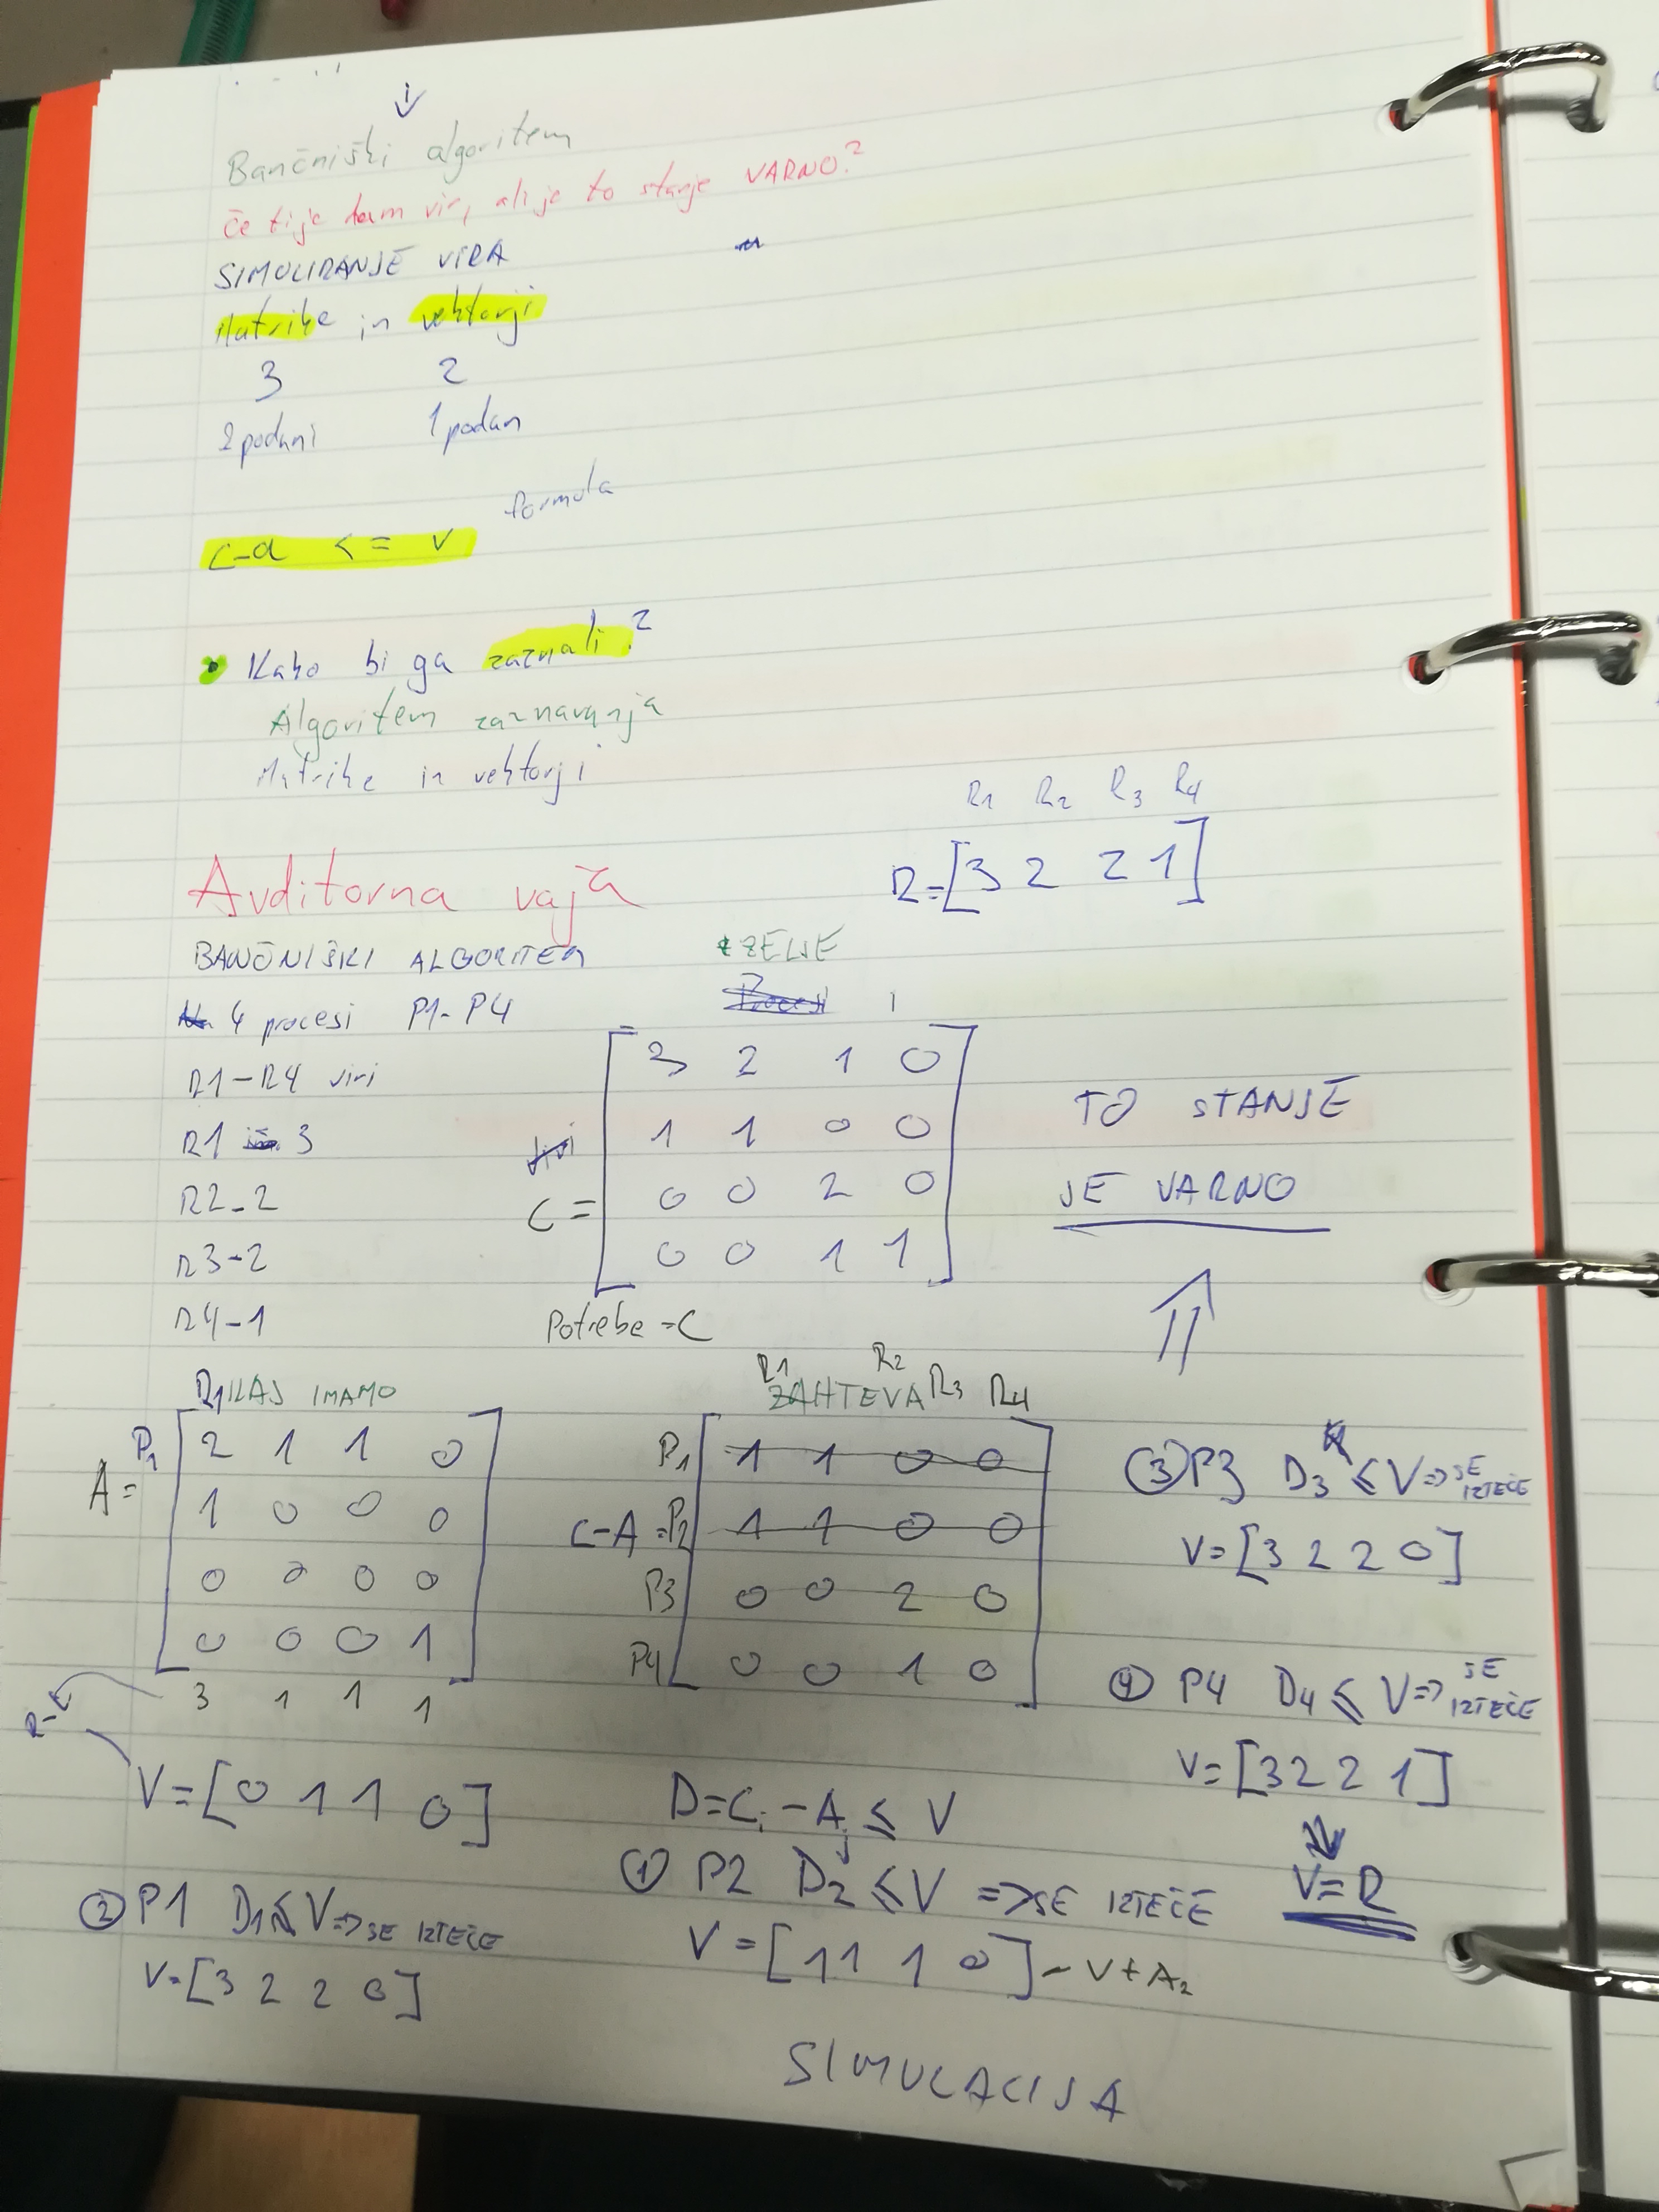 Bančniški algoritem
če ti je dam vir, ali je to stanje VARNO?
SIMULIRANJE VIRA
Matrike in vektorji
3 2
2 podani 1 podan
formula
C-a <= v
• Kako bi ga zaznali?
Algoritem zaznavanja
Matrike in vektorji
R1 R2 R3 R4
R=[3 2 2 1]
Avditorna vaja
BANČNIŠKI ALGORITEM
ŽELJE
4 procesi P1-P4
R1-R4 viri
R1 3
R2-2
R3-2
R4-1
C=
3 2 1 0
1 1 0 0
0 0 2 0
0 0 1 1
Potrebe =C
TO STANJE
JE VARNO
R1 KAJ IMAMO
A=
P1 2 1 1 0
1 0 0 0
0 0 0 0
0 0 0 1
3 1 1 1
V=[0 1 1 0]
R1 R2 R3 R4
ZAHTEVA
C-A =
P1 1 1 0 0
P2 1 1 0 0
P3 0 0 2 0
P4 0 0 1 0
D=Ci-Ai ≤ V
① P2 D2 ≤ V => SE IZTEČE
V=[1 1 1 0] - V+A2
② P1 D1 ≤ V => SE IZTEČE
V=[3 2 2 0]
③ P3 D3 ≤ V => SE IZTEČE
V=[3 2 2 0]
④ P4 D4 ≤ V => SE IZTEČE
V=[3 2 2 1]
V=R
SIMULACIJA